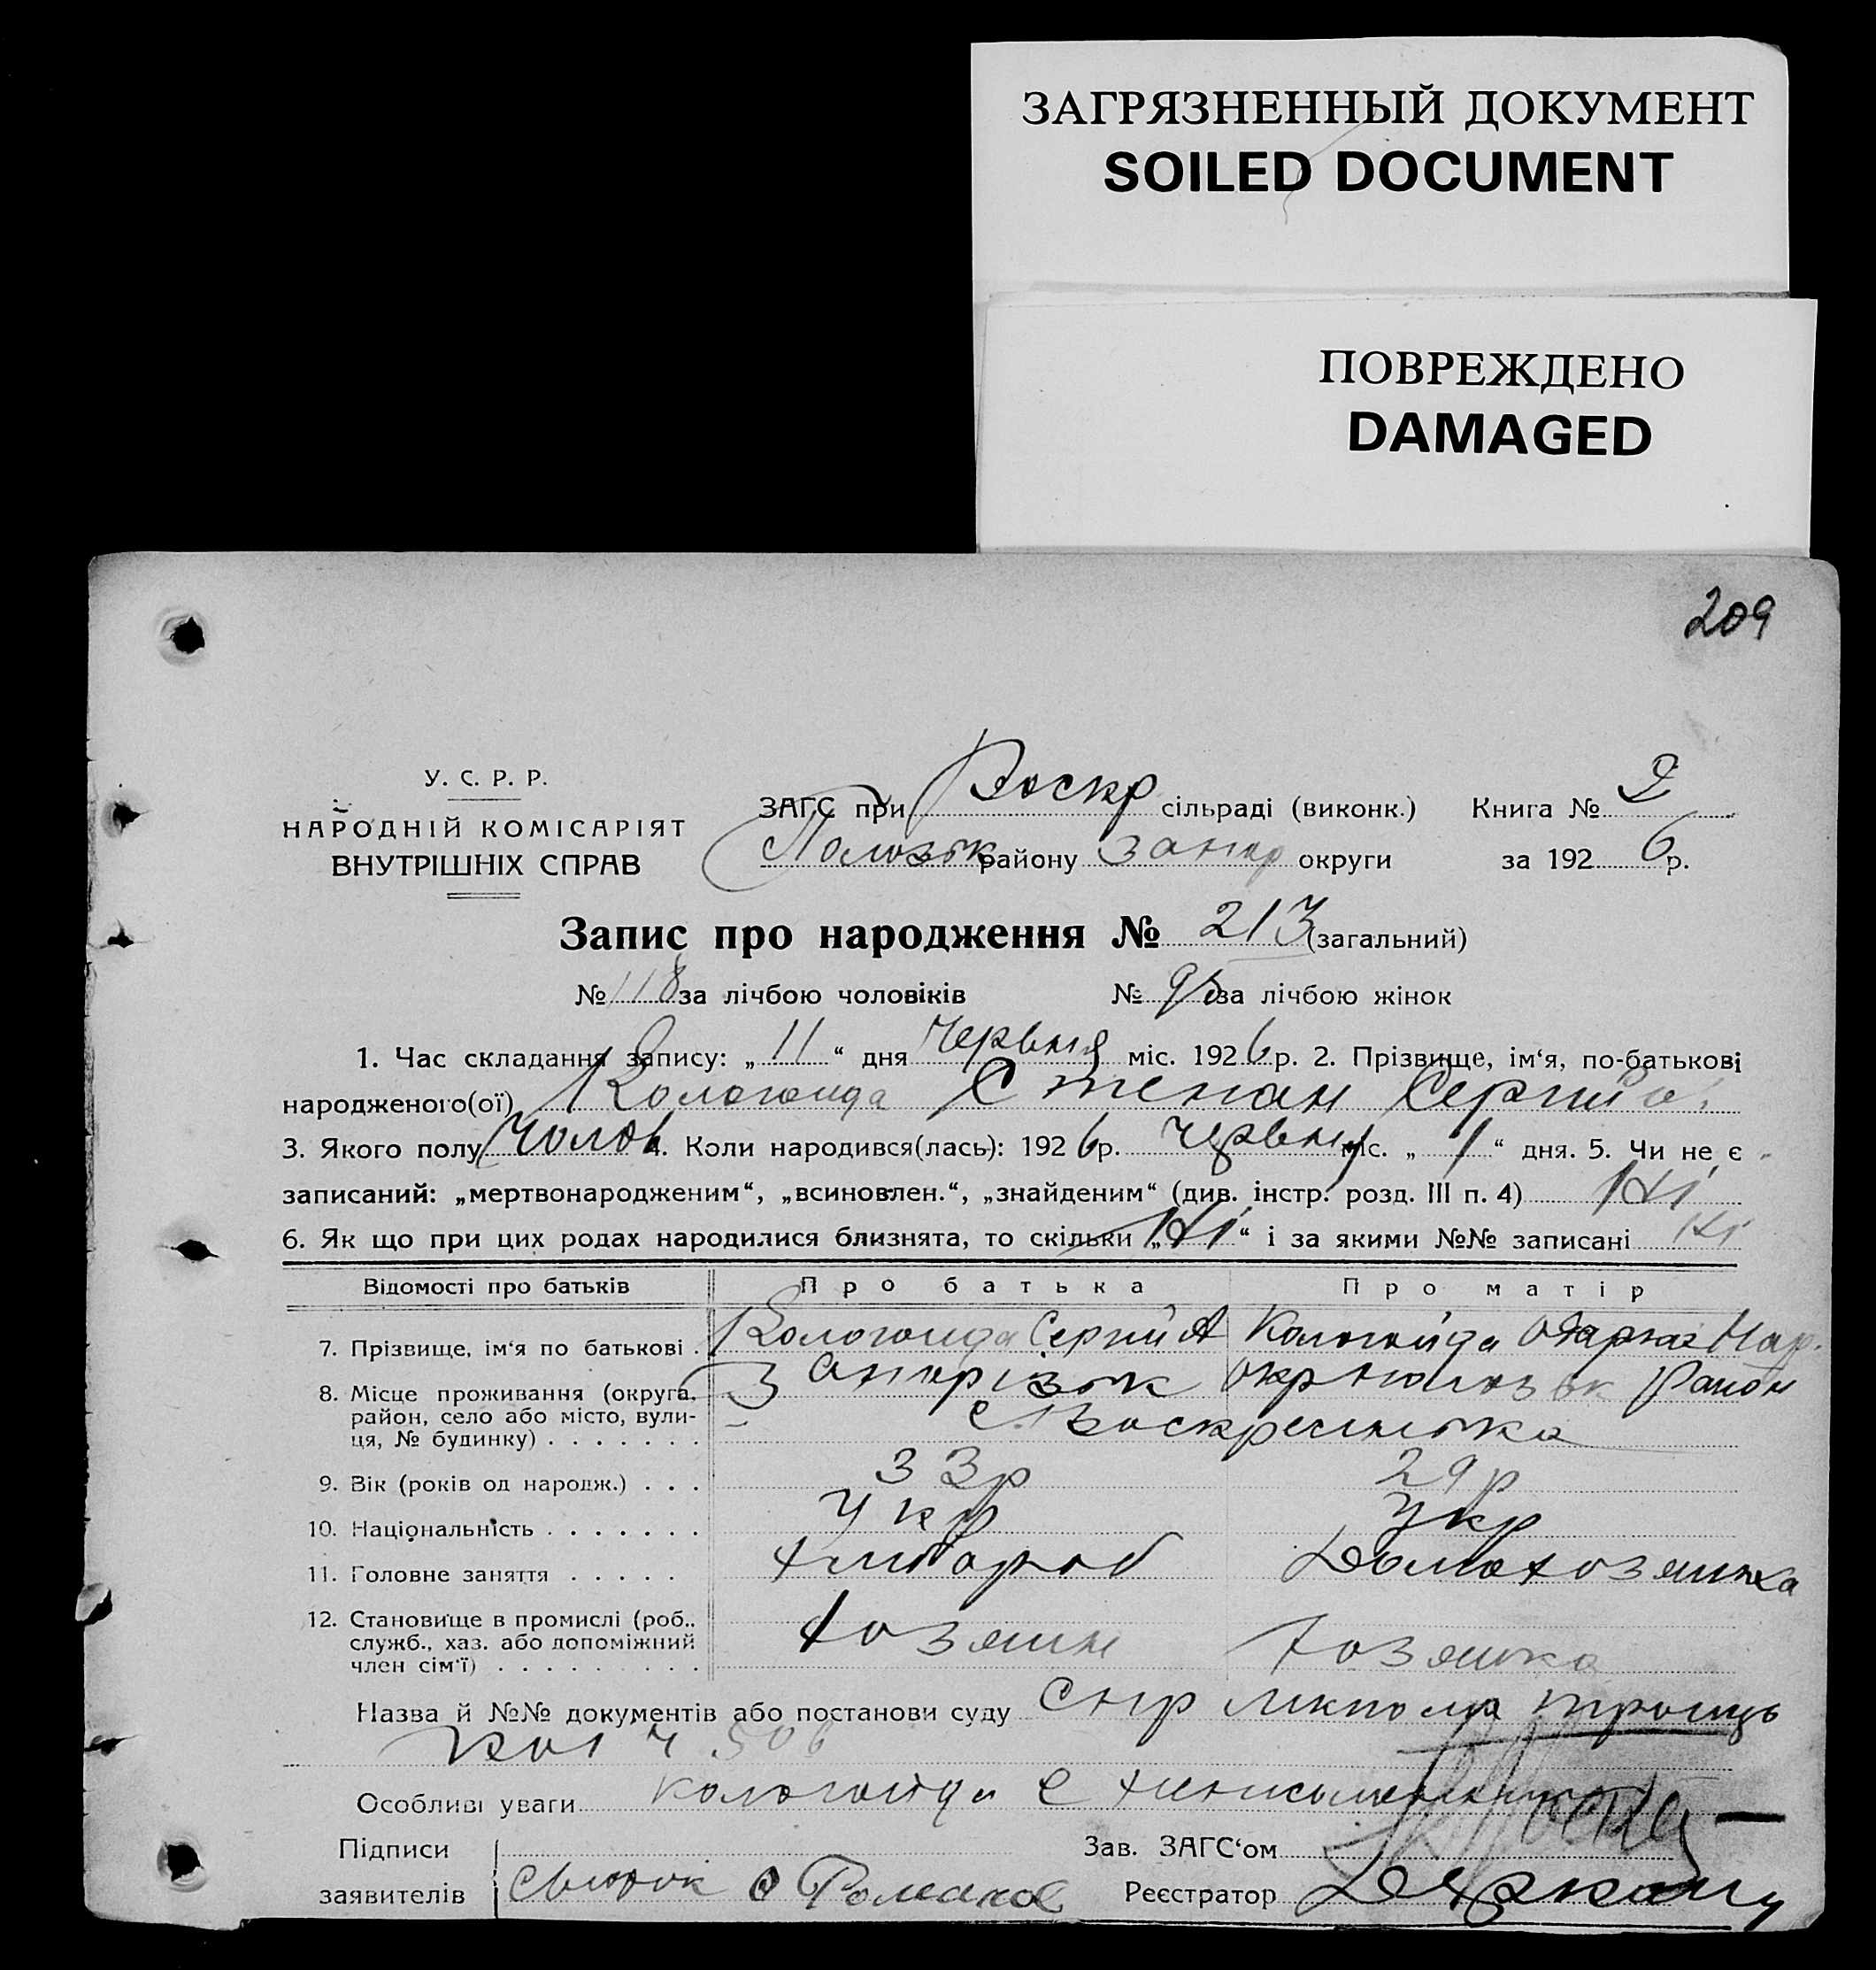 ЗАГРЯЗНЕННЫЙ ДОКУМЕНТ
SOILED DOCUMENT
ПОВРЕЖДЕНО
DAMAGED
209
У. С. Р. Р.
НАРОДНІЙ КОМІСАРІЯТ
ВНУТРІШНІХ СПРАВ
ЗАГС при Воскр сільраді (виконк.) Книга № 2
Пологівськ району Запор округи за 1926 р.
Запис про народження № 213 (загальний)
№ 118 за лічбою чоловіків № 95 за лічбою жінок
1. Час складання запису: „ 11 “ дня Червня міс. 1926 р. 2. Прізвище, ім‘я, по-батькові
народженого(ої) Кологойда Степан Сергій
3. Якого полу Чолов 4. Коли народився(лась): 1926 р. Червня міс. „ 1 “ дня. 5. Чи не є
записаний: „мертвонародженим“, „всиновлен.“, „знайденим“ (див. інстр. розд. III п. 4) Ні
6. Як що при цих родах народилися близнята, то скільки „ Ні “ і за якими №№ записані Ні
Відомості про батьків Про батька Про матір
7. Прізвище, ім‘я по батькові . Кологойда Сергий А Кологойда Одарка Мар.
8. Місце проживання (округа, Запорізьк окр Пологівськ Район
район, село або місто, вули- с. Воскресенька
ця, № будинку) . . . . . . .
9. Вік (років од народж.) . . . 33р 29р
10. Національність . . . . . . . Укр Укр
11. Головне заняття . . . . . хлібороб Домохозяйка
12. Становище в промислі (роб., хозяин хозяйка
служб., хаз. або допоміжний
член сім‘ї) . . . . . . . . .
Назва й №№ документів або постанови суду
Особливі уваги Кологойда С
Підписи
заявителів
Зав. ЗАГС‘ом
Реєстратор